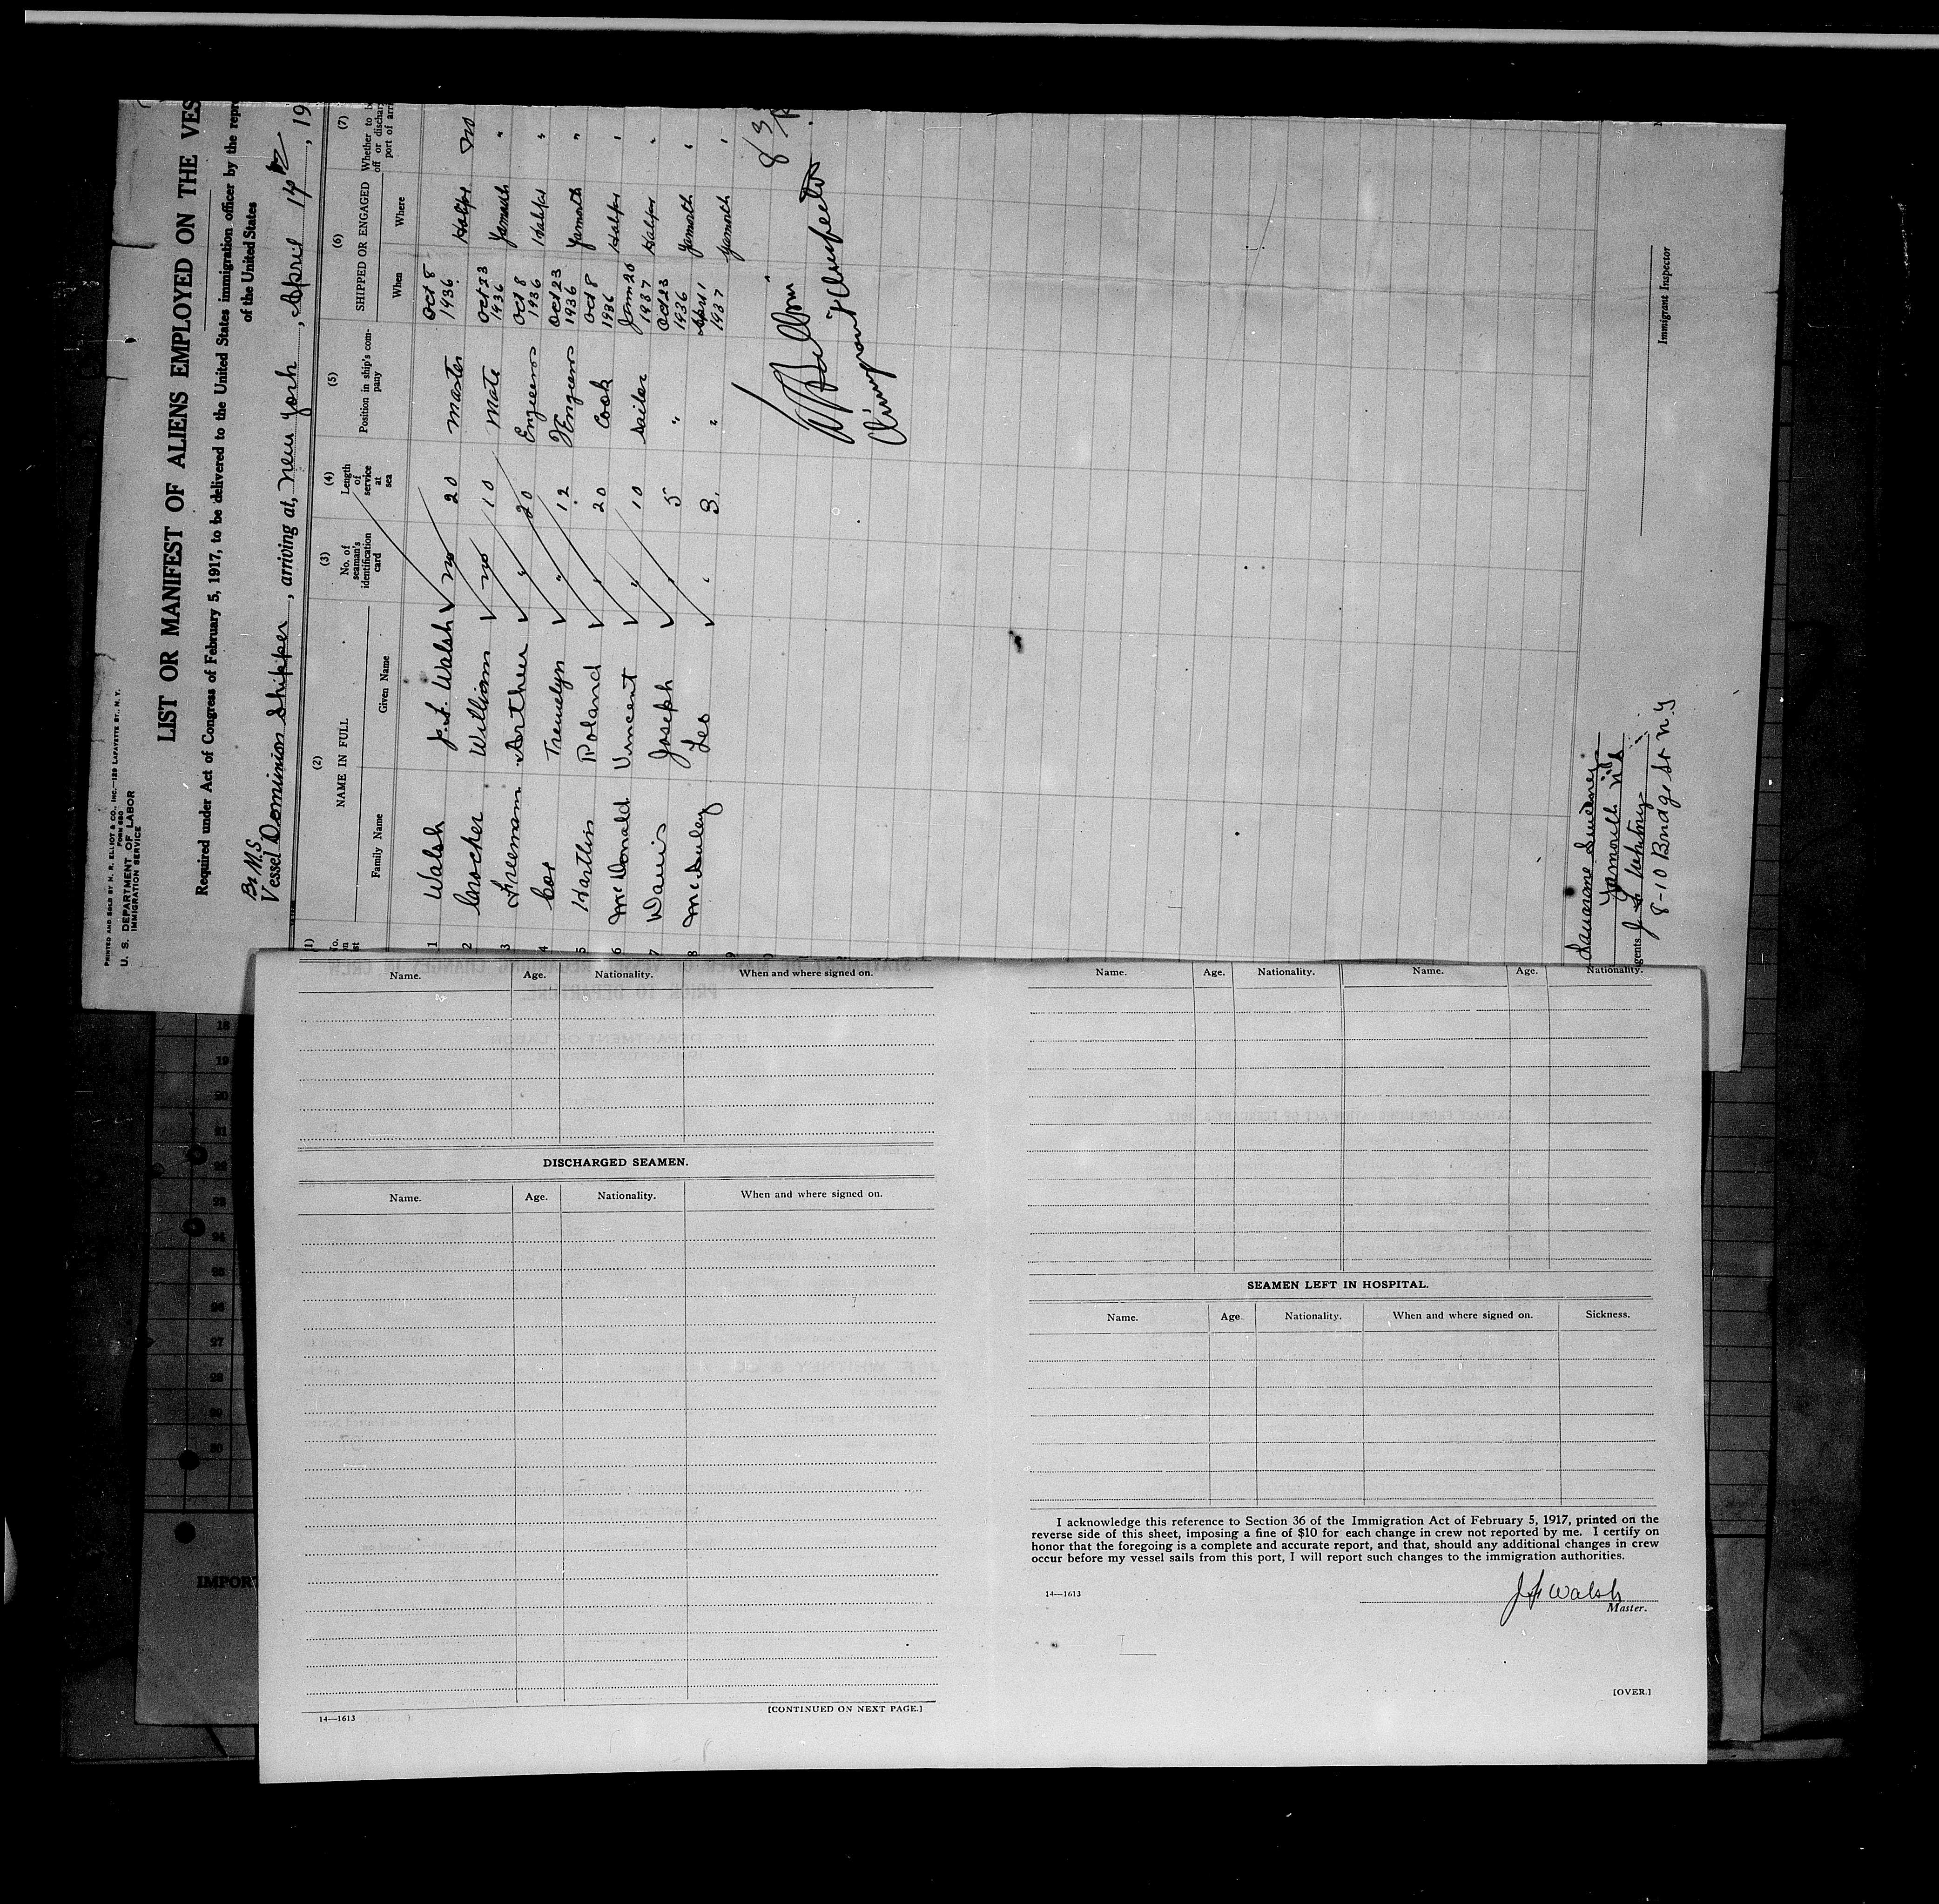 PRINTED AND SOLD BY M. R. ELLIOT & CO., INC.—129 LAFAYETTE ST., N. Y.
FORM 680
U. S. DEPARTMENT OF LABOR
IMMIGRATION SERVICE
LIST OR MANIFEST OF ALIENS EMPLOYED ON THE VES
Required under Act of Congress of February 5, 1917, to be delivered to the United States immigration officer by the repre
of the United States
Br M.S.
Vessel Dominion Shipper, arriving at, New York, April 14th, 19
(1) (2) (3) (4) (5) (6) (7)
No. on st NAME IN FULL No. of seaman's identification card Length of service at sea Position in ship's company SHIPPED OR ENGAGED Whether to b off or dischar port of arri
Family Name Given Name When Where
1 Walsh J. F. Walsh no 20 Master Oct 8 1936 Halifax no
2 Crocker William no 10 Mate Oct 23 1936 Yarmouth "
3 Freeman Arther " 20 Engineer Oct 8 1936 Halifax "
4 Cox Tremelyn " 12 Engineer Oct 23 1936 Yarmouth "
5 Hartlin Roland " 20 Cook Oct 8 1936 Halifax "
6 McDonald Vincent " 10 Sailor 1937 Halifax "
7 Davis Joseph " 5 " Oct 23 1936 Yarmouth "
8 Leo " 3 " April 1 1937 Yarmouth "
9
8 3
Immigrant Inspector
Immigrant Inspector
Sweeney
Yarmouth N.S
gents J F Whitney
8-10 Bridge St N.Y
Name. Age. Nationality. When and where signed on.
DISCHARGED SEAMEN.
Name. Age. Nationality. When and where signed on.
14—1613
[CONTINUED ON NEXT PAGE.]
Name. Age. Nationality. Name. Age. Nationality.
SEAMEN LEFT IN HOSPITAL.
Name. Age. Nationality. When and where signed on. Sickness.
I acknowledge this reference to Section 36 of the Immigration Act of February 5, 1917, printed on the
reverse side of this sheet, imposing a fine of $10 for each change in crew not reported by me. I certify on
honor that the foregoing is a complete and accurate report, and that, should any additional changes in crew
occur before my vessel sails from this port, I will report such changes to the immigration authorities.
14—1613
J F Walsh
Master.
[OVER.]
18
19
20
21
27
IMPOR